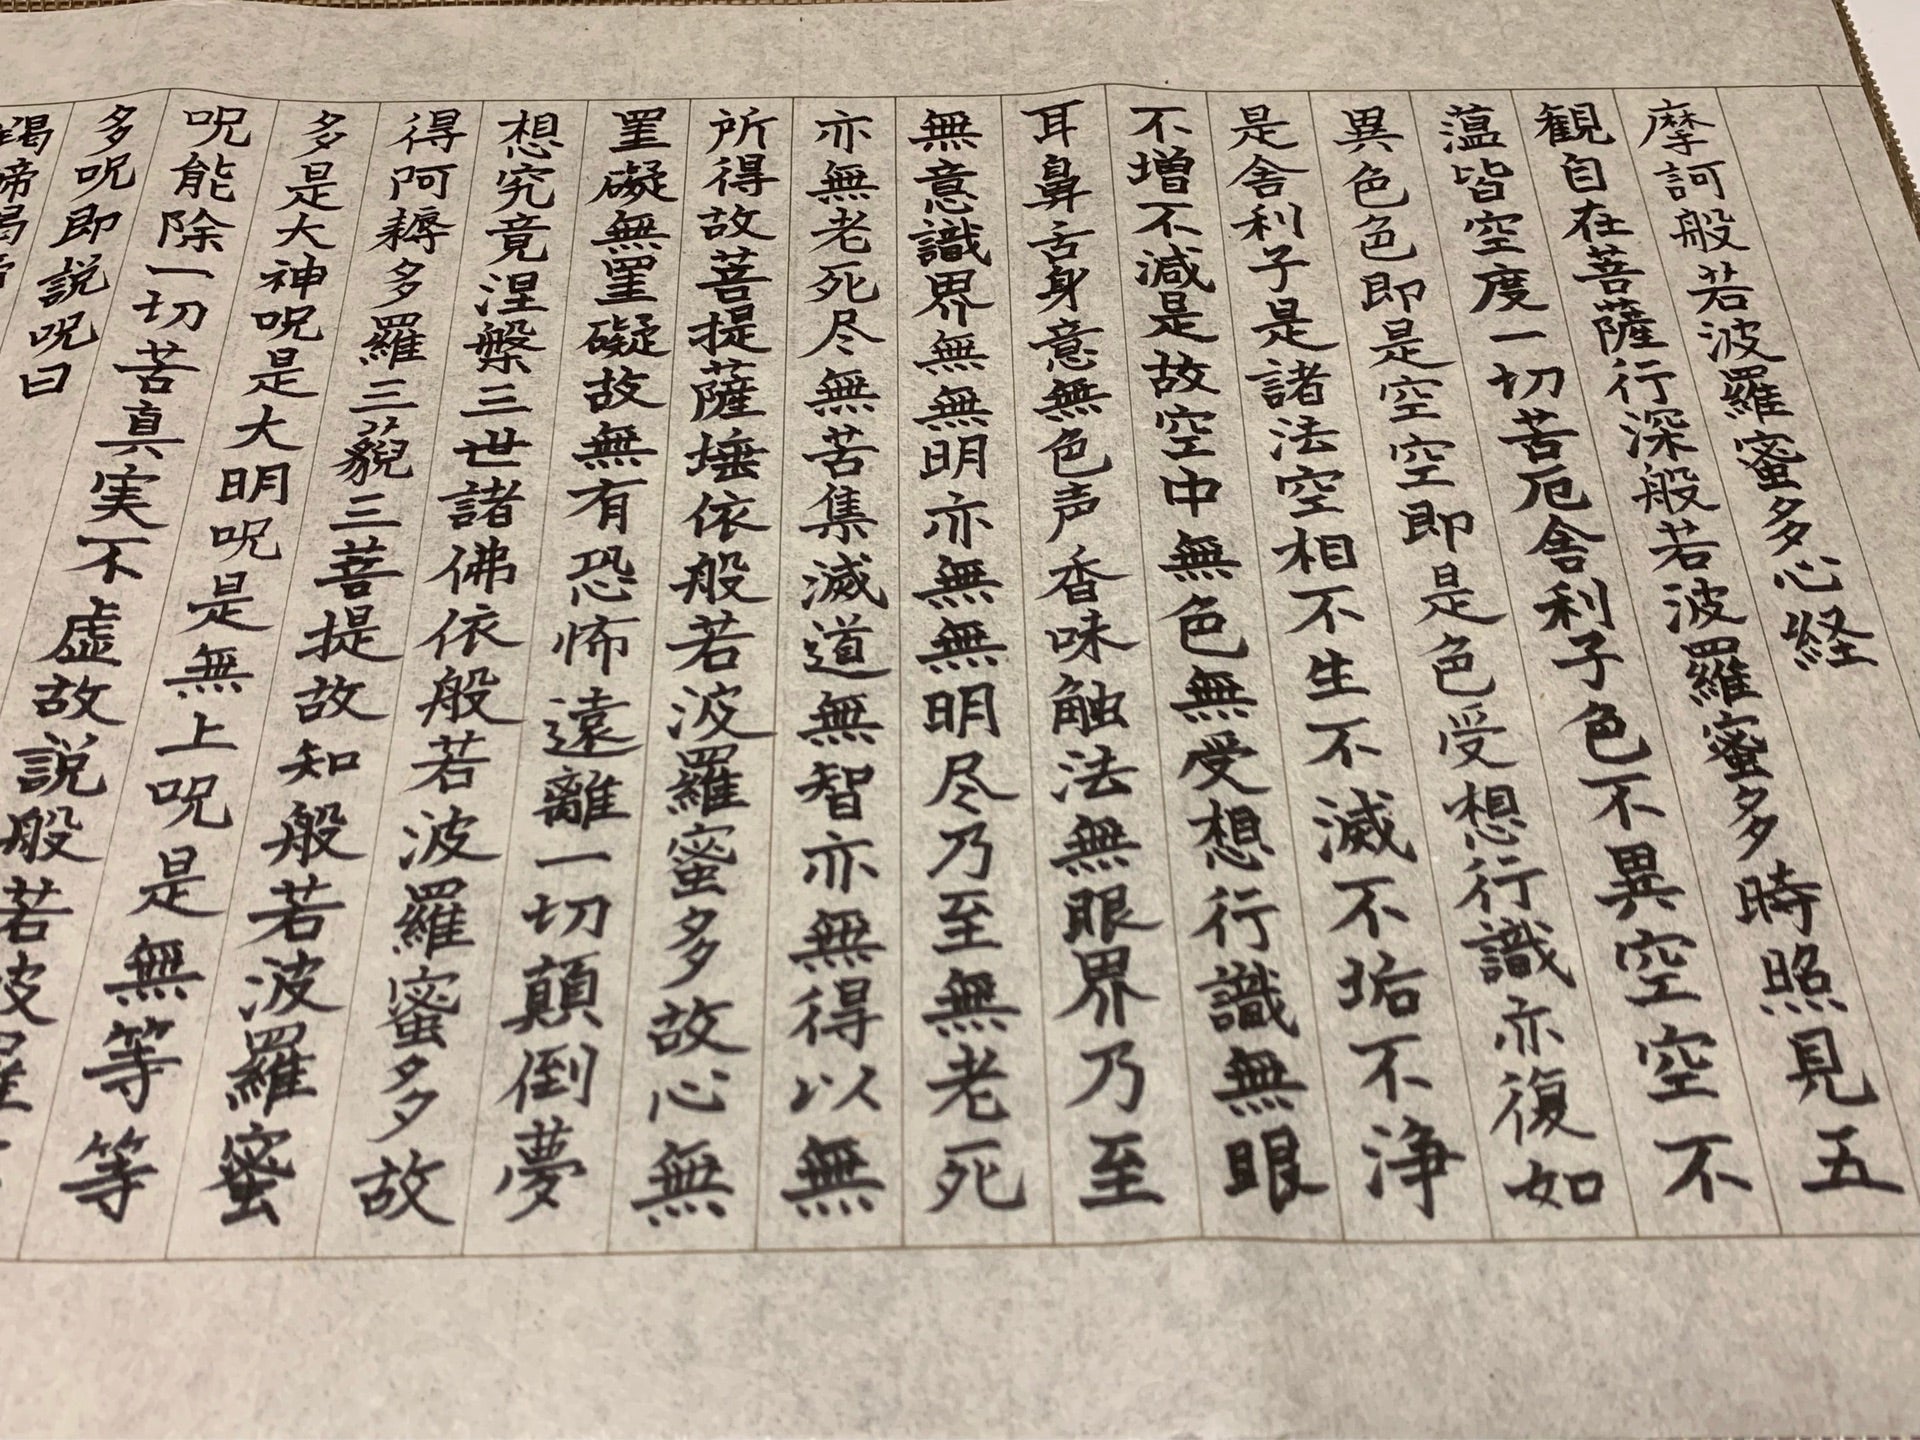 摩訶般若波羅蜜多心経
観自在菩薩行深般若波羅蜜多時照見五
蘊皆空度一切苦厄舎利子色不異空空不
異色色即是空空即是色受想行識亦復如
是舎利子是諸法空相不生不滅不垢不浄
不増不減是故空中無色無受想行識無眼
耳鼻舌身意無色声香味触法無眼界乃至
無意識界無無明亦無無明尽乃至無老死
亦無老死尽無苦集滅道無智亦無得以無
所得故菩提薩埵依般若波羅蜜多故心無
罣礙無罣礙故無有恐怖遠離一切顛倒夢
想究竟涅槃三世諸佛依般若波羅蜜多故
得阿耨多羅三藐三菩提故知般若波羅蜜
多是大神呪是大明呪是無上呪是無等等
呪能除一切苦真実不虚故説般若波羅
多呪即説呪曰